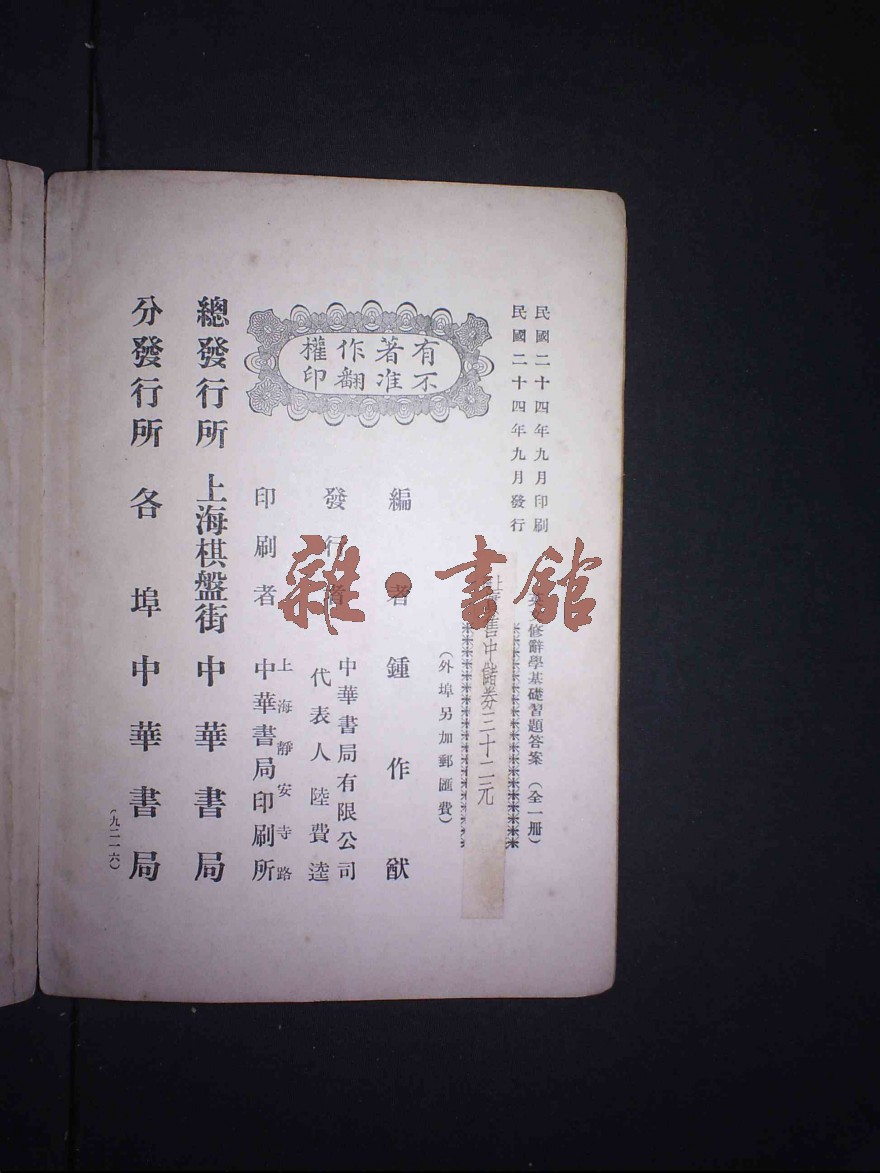 民國二十四年九月印刷
民國二十四年九月發行
修辭學基礎習題答案(全一冊)
售中儲券三十二元
(外埠另加郵匯費)
有著作權
不准翻印
編者 鍾作猷
發行者 中華書局有限公司
代表人陸費逵
印刷者 上海靜安寺路
中華書局印刷所
總發行所 上海棋盤街 中華書局
分發行所 各埠中華書局
(九二一六)
雜·書館